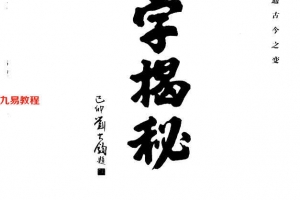 通古今之变
字揭秘
己卯 刘大钧题
九易教程